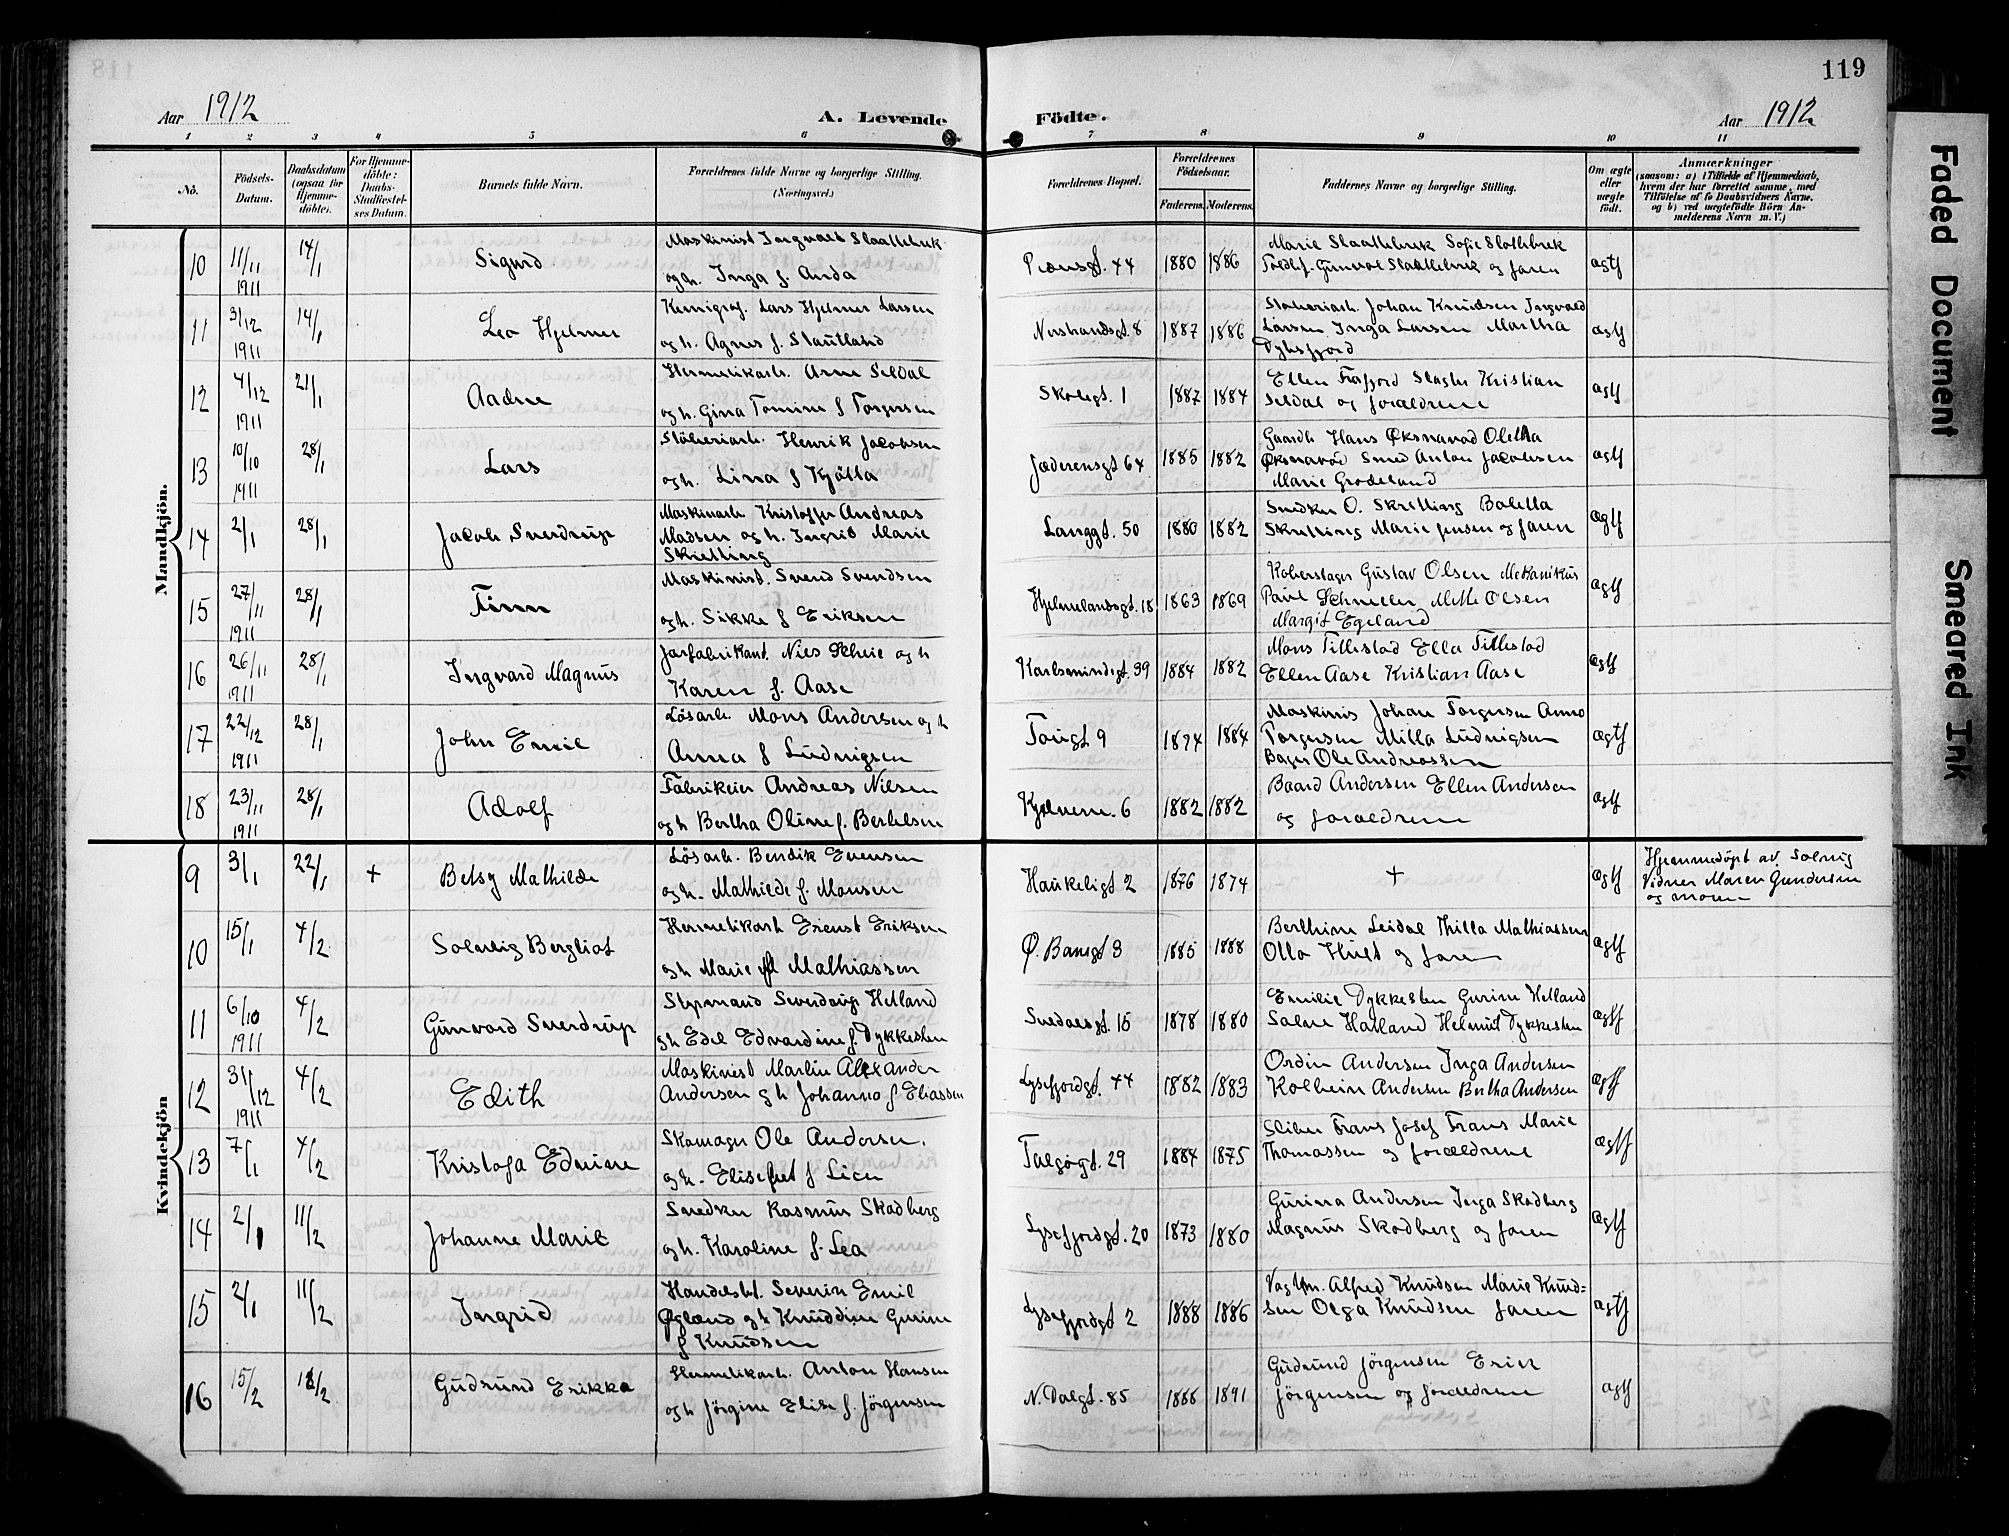 119
Aar 1912
A. Levende Födte.
Aar 1912
1 2 3 4 5 6 7 8 9 10 11
No.
Födsels-
Datum.
Daabsdatum
(ogsaa for
Hjemme-
döbte).
For Hjemme-
döbte:
Daabs-
Stadfæstel-
ses Datum.
Barnets fulde Navn.
Forældrenes fulde Navne og borgerlige Stilling.
(Næringsvei.)
Forældrenes Bopæl.
Forældrenes
Födselsaar.
Faderens. Moderens.
Faddernes Navne og borgerlige Stilling.
Om ægte
eller
uægte
födt.
Anmærkninger
(saasom: a) i Tilfælde af Hjemmedaab,
hvem der har forrettet samme, med
Tilföielse af to Daabsvidners Navne,
og b) ved uægtefödte Börn An-
melderens Navn m. V.)
Mandkjön.
10 11/11 1911 14/1 Sigurd
Maskinist Ingvald Slaattebrek
og h. Inga f. Anda
44 1880 1886
Marie Slaattebrek Sofie Slottebrek
Gunvor Slaattebrek og faren
ægtf
11 3/12 1911 14/1 Leo Hjelmer
Kemigraf. Lars Hjelmer Larsen
og h. Agnes f. Stautland
8 1887 1886
Johan Knudsen Ingvald
Larsen Inga Larsen Martha
ægtf
12 4/12 1911 21/1 Aadne
Hermetikarb. Arne Seldal
og h. Gina Tomine f Torgersen
Skolegt. 1 1887 1884
Ellen Frafjord Slagter Kristian
Seldal og forældrene
ægtf
13 10/10 1911 28/1 Lars
Stöberiarb. Henrik Jacobsen
og h. Lina f Kjölla
Jæderensgt 64 1885 1882
Gaardb Hans Øksnavad Oletha
Øksnavad Smed Anton Jacobsen
Marie Grödeland
ægtf
14 2/1 28/1 Jacob Sverdrup
Maskinarb Kristoffer Andreas
Madsen og h. Ingrid Marie
Skretting
Langgt. 50 1880 1882
Snedker O. Skretting Boletta
Skretting Marie Jensen og faren
ægtf
15 27/11 1911 28/1 Finn
Maskinist. Svend Svendsen
og h. Sikke f Eriksen
Hjelmelandsgt. 18 1863 1869
Koberslager Gustav Olsen Mekanikus
Paul Schneller Mette Olsen
Margit Egeland
ægtf
16 26/11 1911 28/1 Ingvard Magnus
Jarfabrikant. Nies Scheie og h
Karen f. Aase
Karlsmindegt. 39 1884 1882
Mons Tillestad Ella Tillestad
Ellen Aase Kristian Aase
ægtf
17 22/12 1911 28/1 John Emil
Lösarb. Mons Andersen og h
Anna f Ludvigsen
Tougt 9 1874 1884
Maskinis Johan Torgersen Anna
Torgersen Milla Ludvigsen
Bager Ole Andreassen
ægtf
18 23/11 1911 28/1 Adolf
Fabrikeier Andreas Nilsen
og h Bertha Oline f. Bertelsen
Kjelvene. 6 1882 1882
Baard Andersen Ellen Andersen
og forældrene
ægtf
Kvindekjön
9 3/1 22/1 + Betsy Mathilde
Lösarb. Bendik Evensen
og h. Mathilde f. Monsen
Haukeligt 2 1876 1874
+
ægtf
Hjemmedöpt av Solveig
Vidner Maren Gundersen
og moren
10 15/1 4/2 Solveig Bergliot
Hermetikarb Ernst Eriksen
og h Marie f Mathiassen
Ø. Banegt 3 1885 1888
Berthine Leidal Thilla Mathiassen
Olla Hult og faren
ægtf
11 6/10 1911 4/2 Gunvord Sverdrup
Styrmand Severdrup Helland
og h Edel Edvardine f. Dykkesten
Svedalsgt. 15 1878 1880
Emilie Dykkesten Gurine Helland
Salve Hatland Helmut Dykkesten
ægtf
12 31/12 1911 4/2 Edith
Maskinist Martin Alexander
Andersen og h Johanna f Eliassen
Lysefjordgt. 44 1882 1883
Ordin Andersen Inga Andersen
Kolbein Andersen Bertha Andersen
ægtf
13 7/1 4/2 Kristofa Edvine
Skomager Ole Andersen.
og h. Elisebet f Lien
Talgøgt. 29 1884 1875
Sliber Frans Josef Frans Marie
Thomassen og forældrene
ægtf
14 2/1 11/2 Johanne Marie
Snedker Rasmus Skadberg
og h. Karoline f. Lea
Lysefjordgt. 20 1873 1880
Gurina Andersen Inga Skadberg
Magnus Skadberg og faren
ægtf
15 2/1 11/2 Ingrid
Handelsb. Severin Emil
Øgland og h Knuddine Gurine
f Knudsen
Lysefjordgt 2 1888 1886
Alfred Knudsen Marie Knud-
sen Olga Knudsen faren
ægtf
16 15/2 18/2 Gudrund Erikka
Hermetikarb. Anton Hansen
og h Jörgine Elise f. Jörgensen
N. Dalgt. 85 1888 1891
Gudrund Jörgensen Erik
Jörgensen og forældrene
ægtf
Faded Document
Smeared Ink